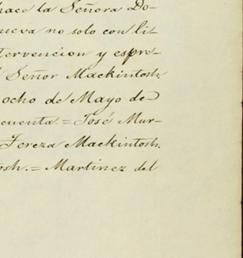 hace la Señora Do-
nueva no solo con li-
tervencion y espre-
Señor Mackintosh
ocho de Mayo de
cuenta. = José Mur-
Tereza Mackintosh.
osh. = Martinez del